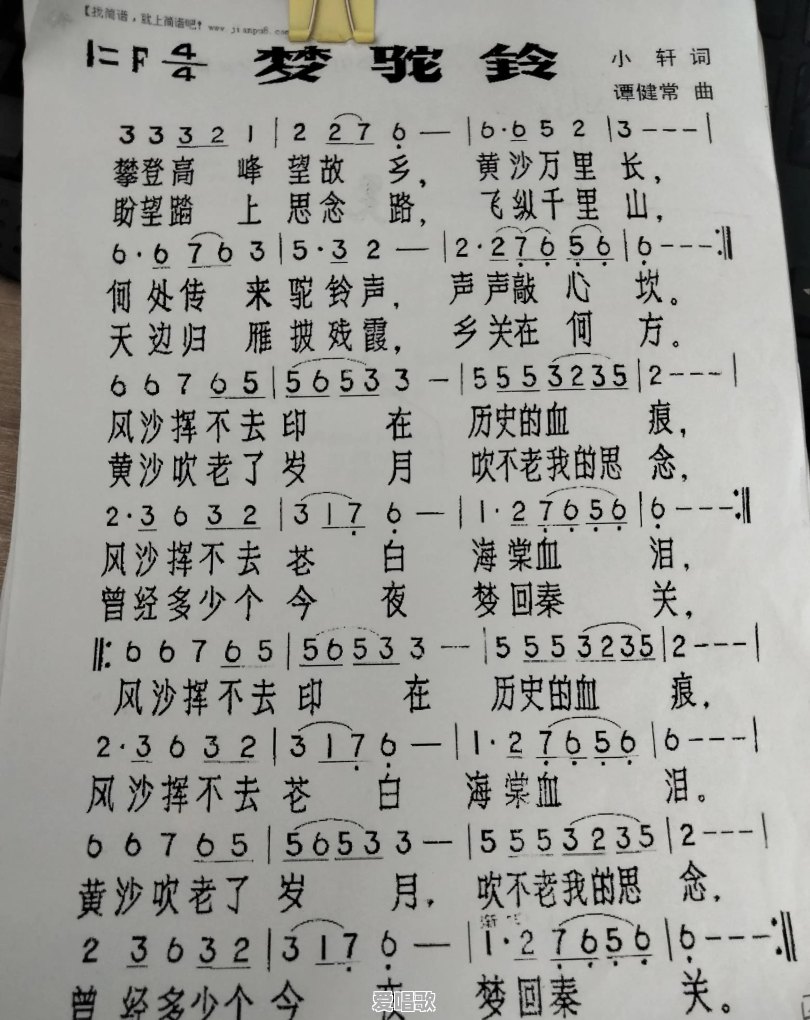 【找简谱，就上简谱吧！www.jianpu8.co
1=F 4/4 梦驼铃 小轩 词
谭健常 曲
3 3 3 2 1 | 2 2 7 6 — | 6·6 5 2 | 3 - - - |
攀登高 峰 望故 乡， 黄沙万里 长，
盼望踏 上 思念 路， 飞纵千里 山，
6·6 7 6 3 | 5·3 2 — | 2·2 7 6 5 6 | 6 - - - :||
何处传 来 驼铃声， 声声敲 心 坎。
天边归 雁 披残霞， 乡关在 何 方。
6 6 7 6 5 | 5 6 5 3 3 — | 5 5 5 5 3 2 3 5 | 2 - - - |
风沙挥不去 印 在 历史的血 痕，
黄沙吹老了 岁 月 吹不老我的思 念，
2·3 6 3 2 | 3 1 7 6 — | 1·2 7 6 5 6 | 6 - - - :||
风沙挥不去 苍 白 海棠血 泪，
曾经多少个 今 夜 梦回秦 关，
||: 6 6 7 6 5 | 5 6 5 3 3 — | 5 5 5 5 3 2 3 5 | 2 - - - |
风沙挥不去 印 在 历史的血 痕，
2·3 6 3 2 | 3 1 7 6 — | 1·2 7 6 5 6 | 6 - - - |
风沙挥不去 苍 白 海棠血 泪。
6 6 7 6 5 | 5 6 5 3 3 — | 5 5 5 5 3 2 3 5 | 2 - - - |
黄沙吹老了 岁 月， 吹不老我的思 念，
2 3 6 3 2 | 3 1 7 6 — | 1·2 7 6 5 6 | 6 - - - :||
曾经多少个 今 夜 梦回秦 关。
爱唱歌